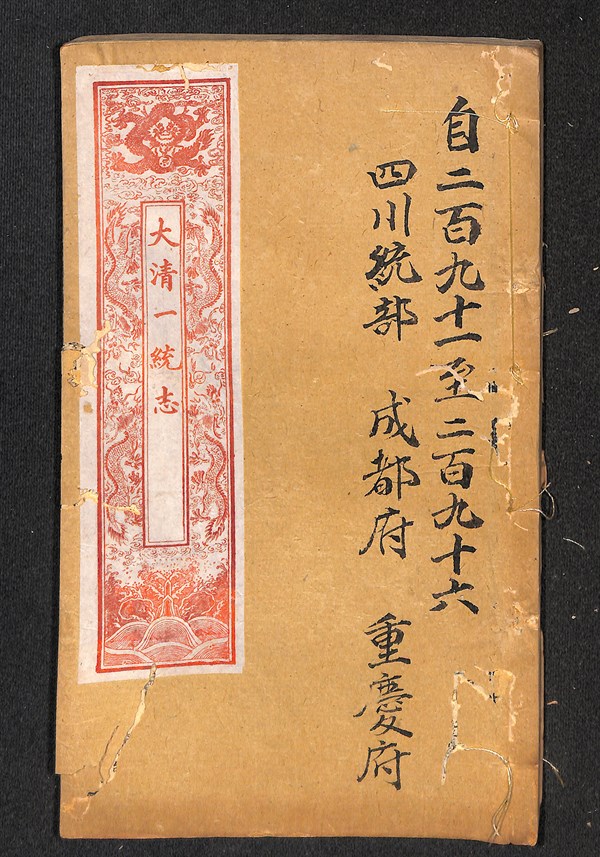 自二百九十一至二百九十六
四川統部 成都府 重慶府
大清一統志